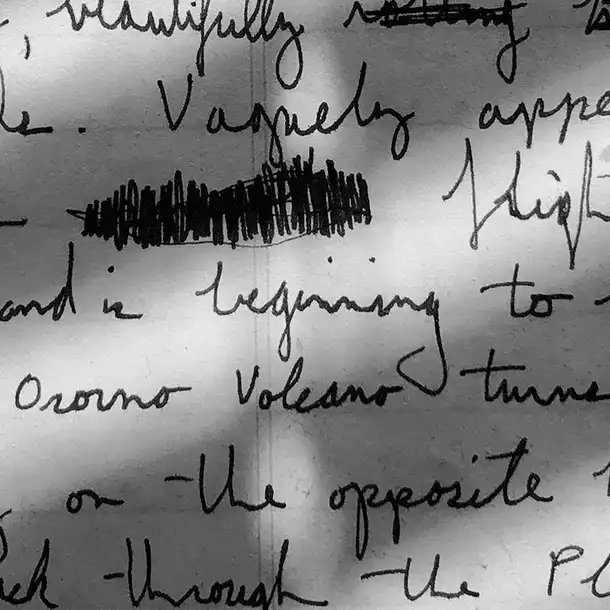 , beautifully
. Vaguely appe
fligh
and is beginning to
Osorno Volcano turns
on the opposite
ck through the Pl